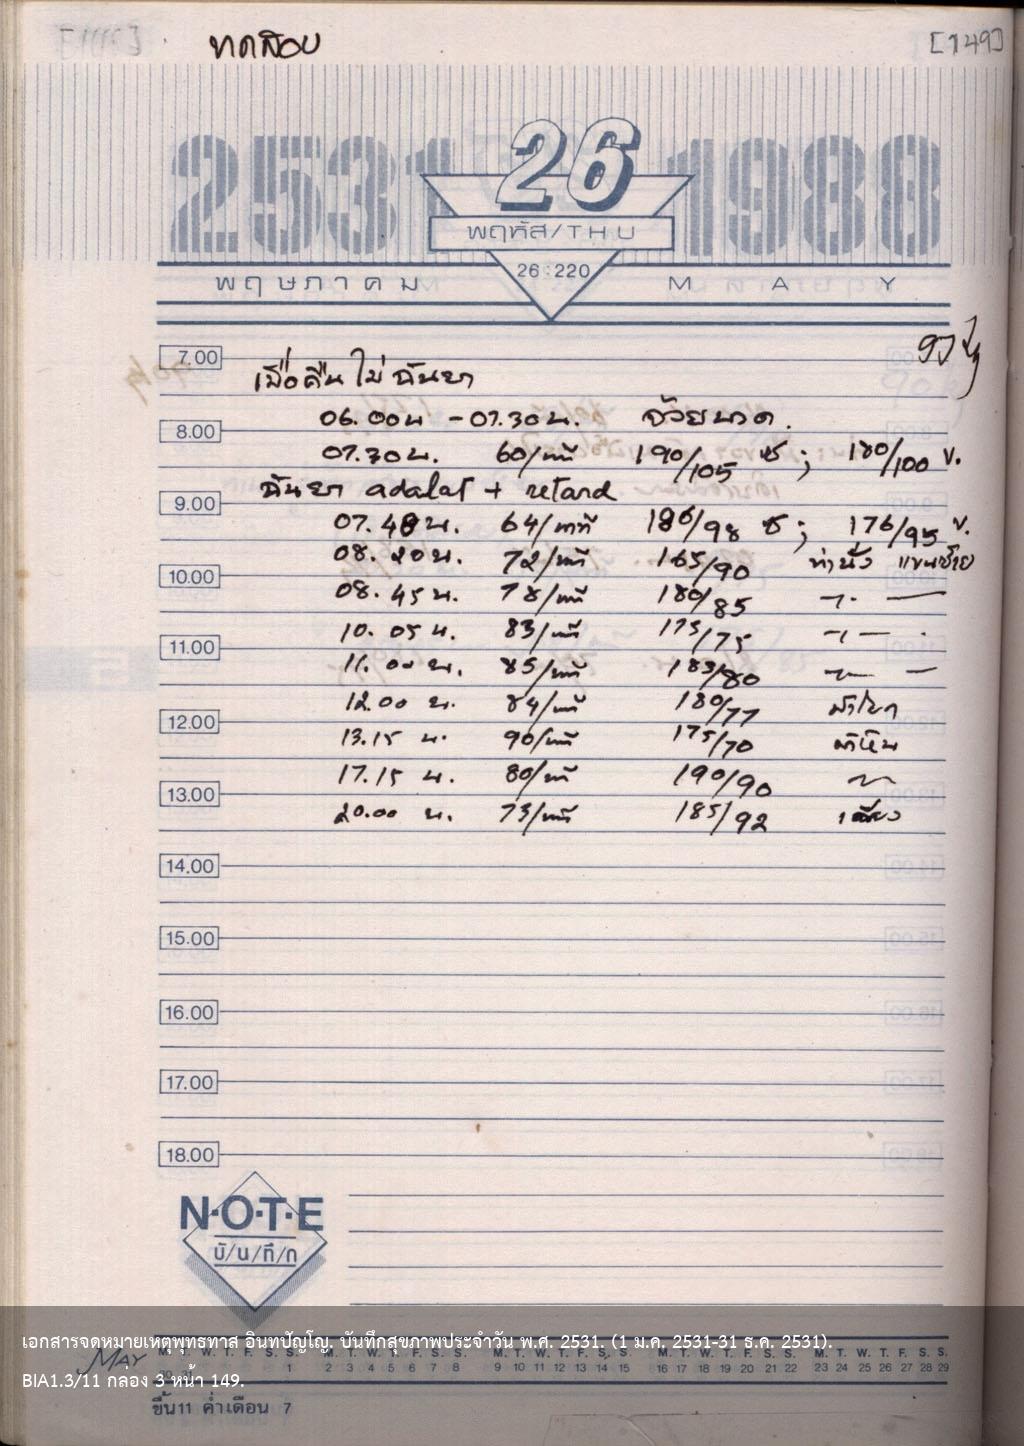 ทดสอบ [149]
2531 26 1988
พฤหัส/THU
26:220
พฤษภาคม MAY
7.00
เมื่อคืน ไม่ ฉันยา
06.00น - 07.30น.
8.00
07.30น. 60/นาที 190/105 ซ; 180/100 ข.
ฉันยา adalat + retard
9.00
07.48น. 64/นาที 186/98 ซ; 176/95 ข.
08.20น. 72/นาที 165/90 ท่านั่ง แขนซ้าย
10.00
08.45น. 78/นาที 180/85
10.05น. 83/นาที 175/75
11.00
11.00น. 85/นาที 183/80
12.00 น. 84/นาที 180/77
12.00
13.15 น. 90/นาที 175/70
17.15 น. 80/นาที 190/90
13.00
20.00 น. 73/นาที 185/92
14.00
15.00
16.00
17.00
18.00
N·O·T·E
บั/น/ทึ/ก
เอกสารจดหมายเหตุพุทธทาส อินทปัญโญ. บันทึกสุขภาพประจำวัน พ.ศ. 2531. (1 ม.ค. 2531-31 ธ.ค. 2531).
MAY M. T. W. T. F. S. S. M. T. W. T. F. S. S. M. T. W. T. F. S. S. M. T. W. T. F. S. S. M. T. W. T. F. S. S.
1 2 3 4 5 6 7 8 9 10 11 12 13 14 15 16 17 18 19 20 21 22 23 24 25 26 27 28 29
BIA1.3/11 กล่อง 3 หน้า 149.
ขึ้น11 ค่ำเดือน 7